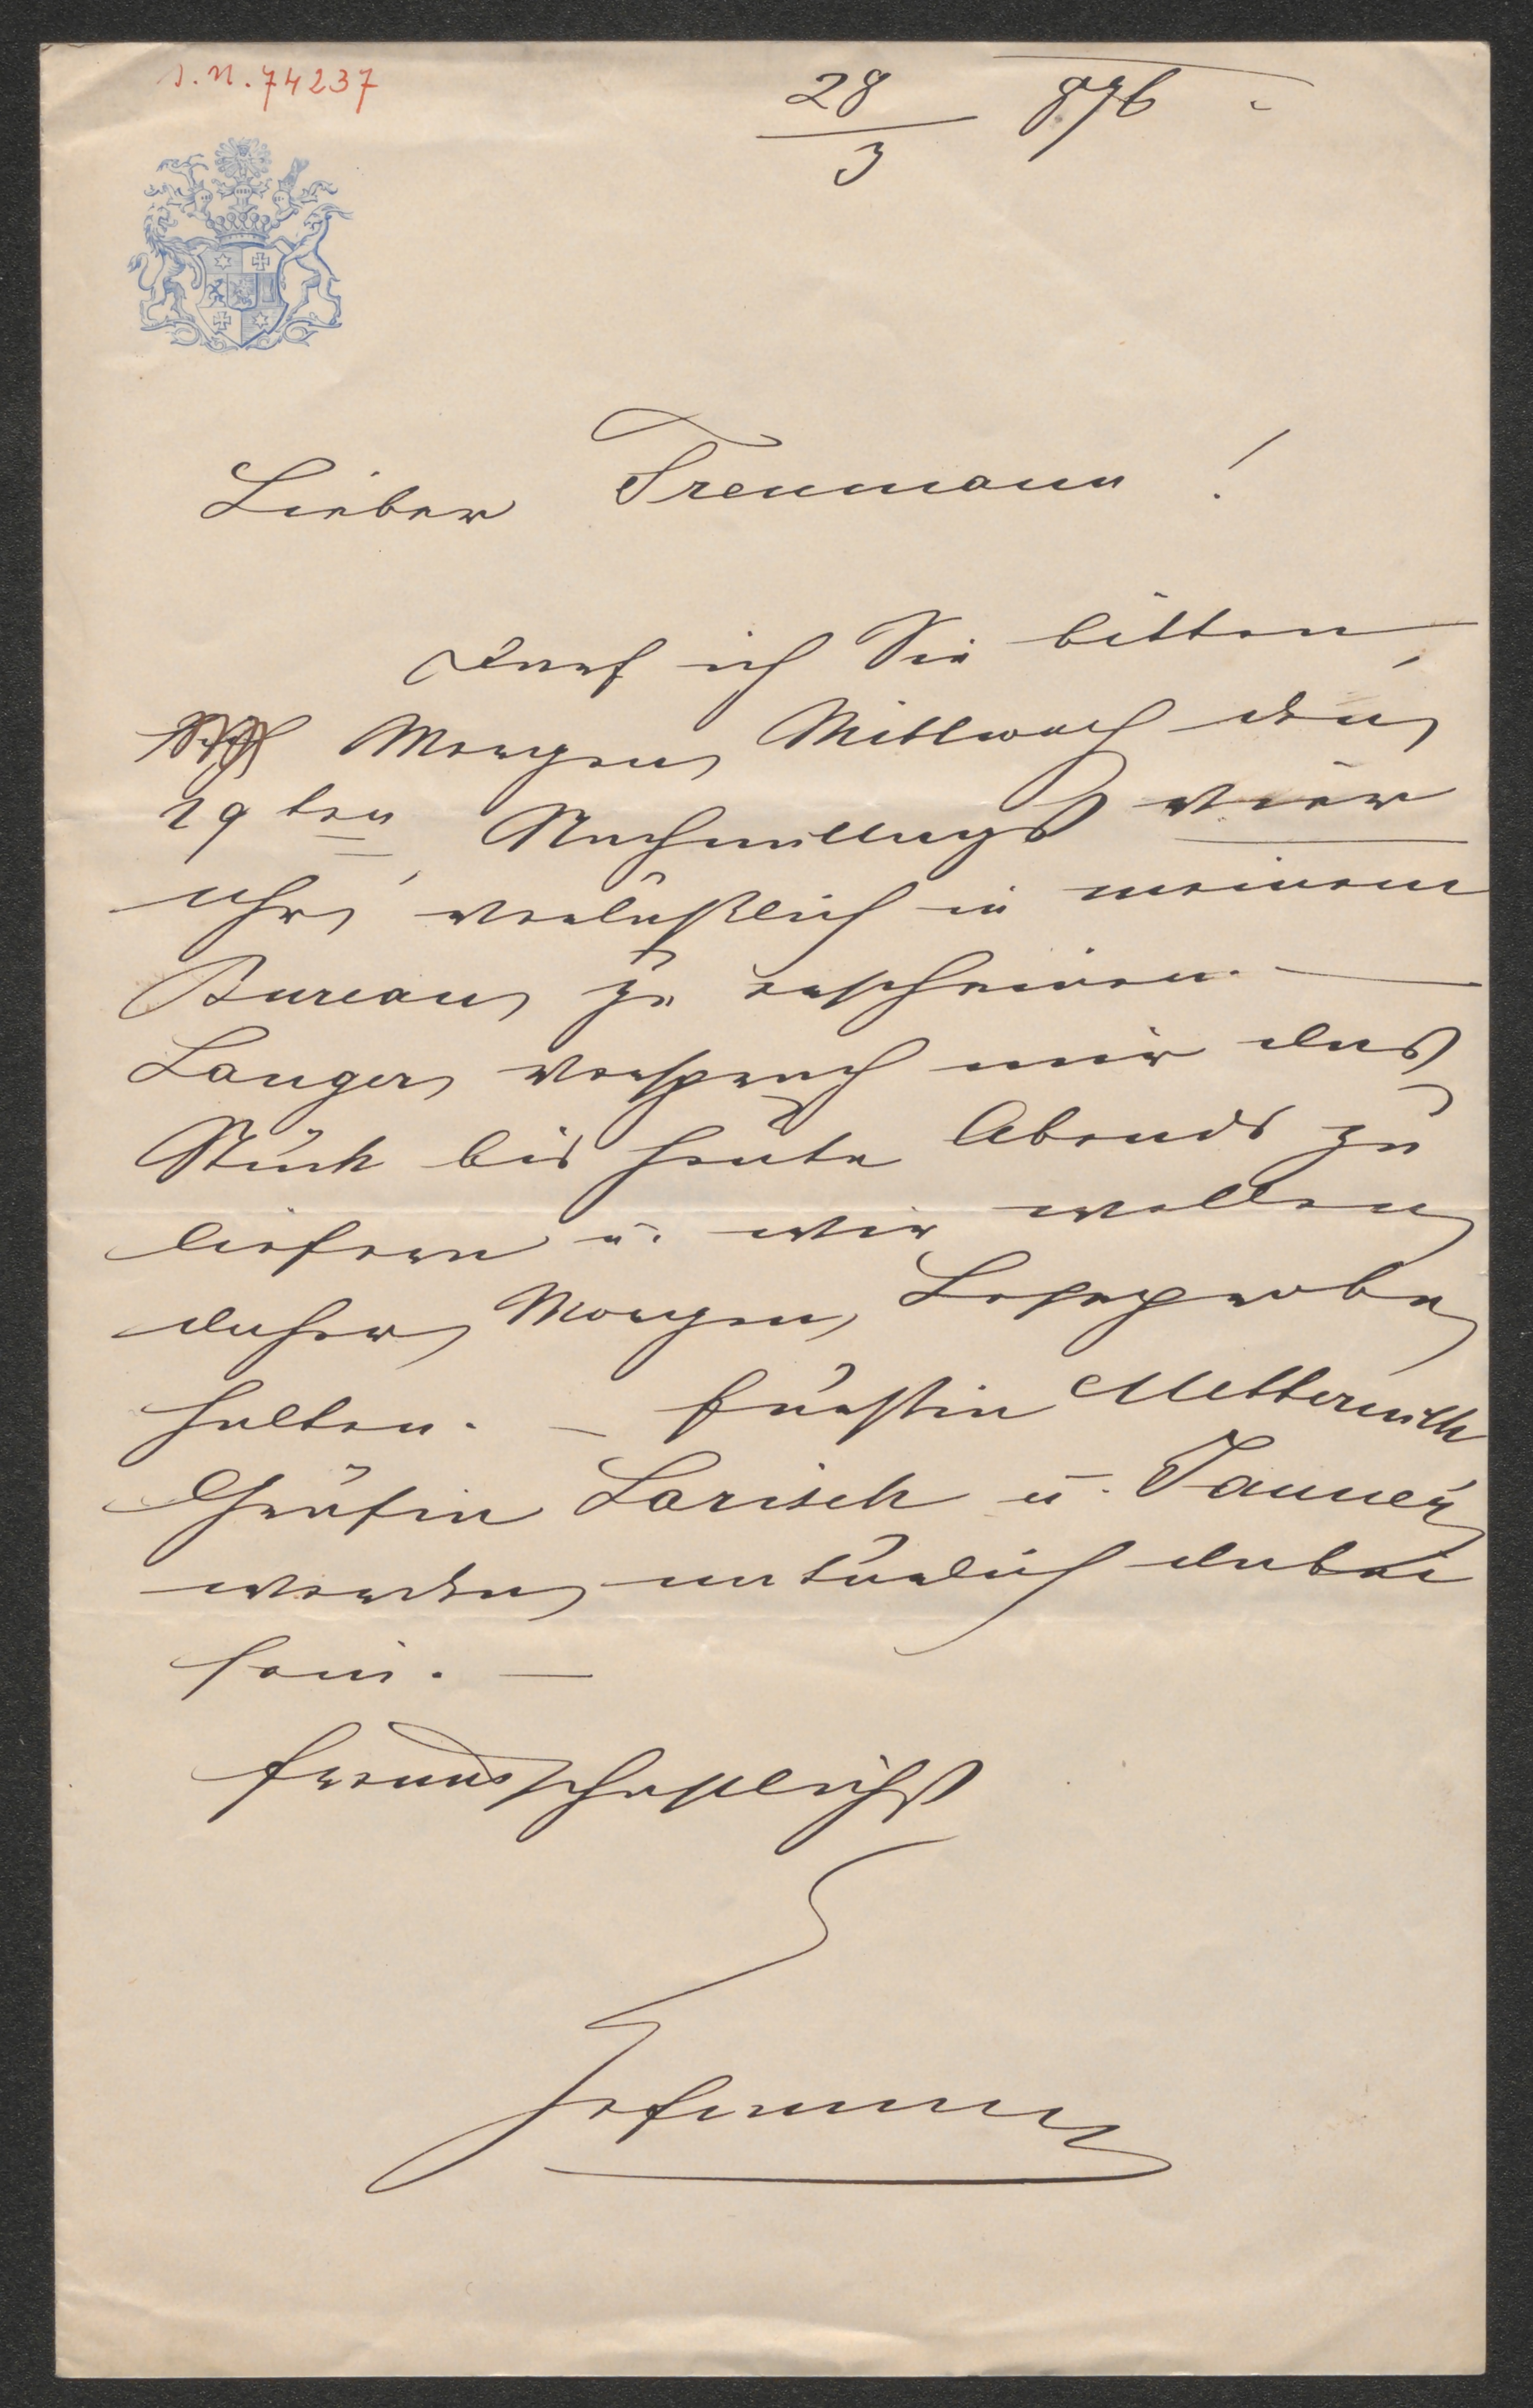 I.N. 74237
28/3 876
Lieber Treumann!
Darf ich Sie bitten,
Morgen Mittwoch den
29ten, Nachmittags vier
Uhr, verläßlich in meinem
Bureau zu erscheinen. —
Langer versprach mir das
Stück bis heute Abends zu
liefern u. wir wollen
daher Morgen Leseprobe
halten. — Fürstin Metternich
Gräfin Larisch u. Jauner
werden natürlich dabei
sein. —
Freundschaftlichst
Hofmann